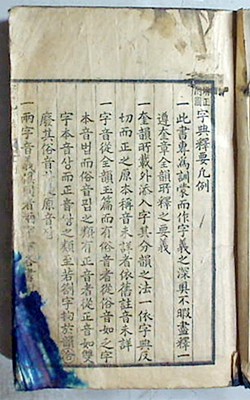 字典釋要凡例
一此書專爲訓蒙而作字義之深奧不暇盡釋一
遵奎章全韻所釋之要義
一奎韻所載外添入字其分韻之法一依字典反
切而正之原本稱音未詳者依舊註音未詳
一字音從全韻玉篇而有俗音者從俗音如之字
本音범而俗音핍之類有正音者從正音如雙
字本音상而正音쌍之類至若字於韻
其俗音原音
一兩字音義